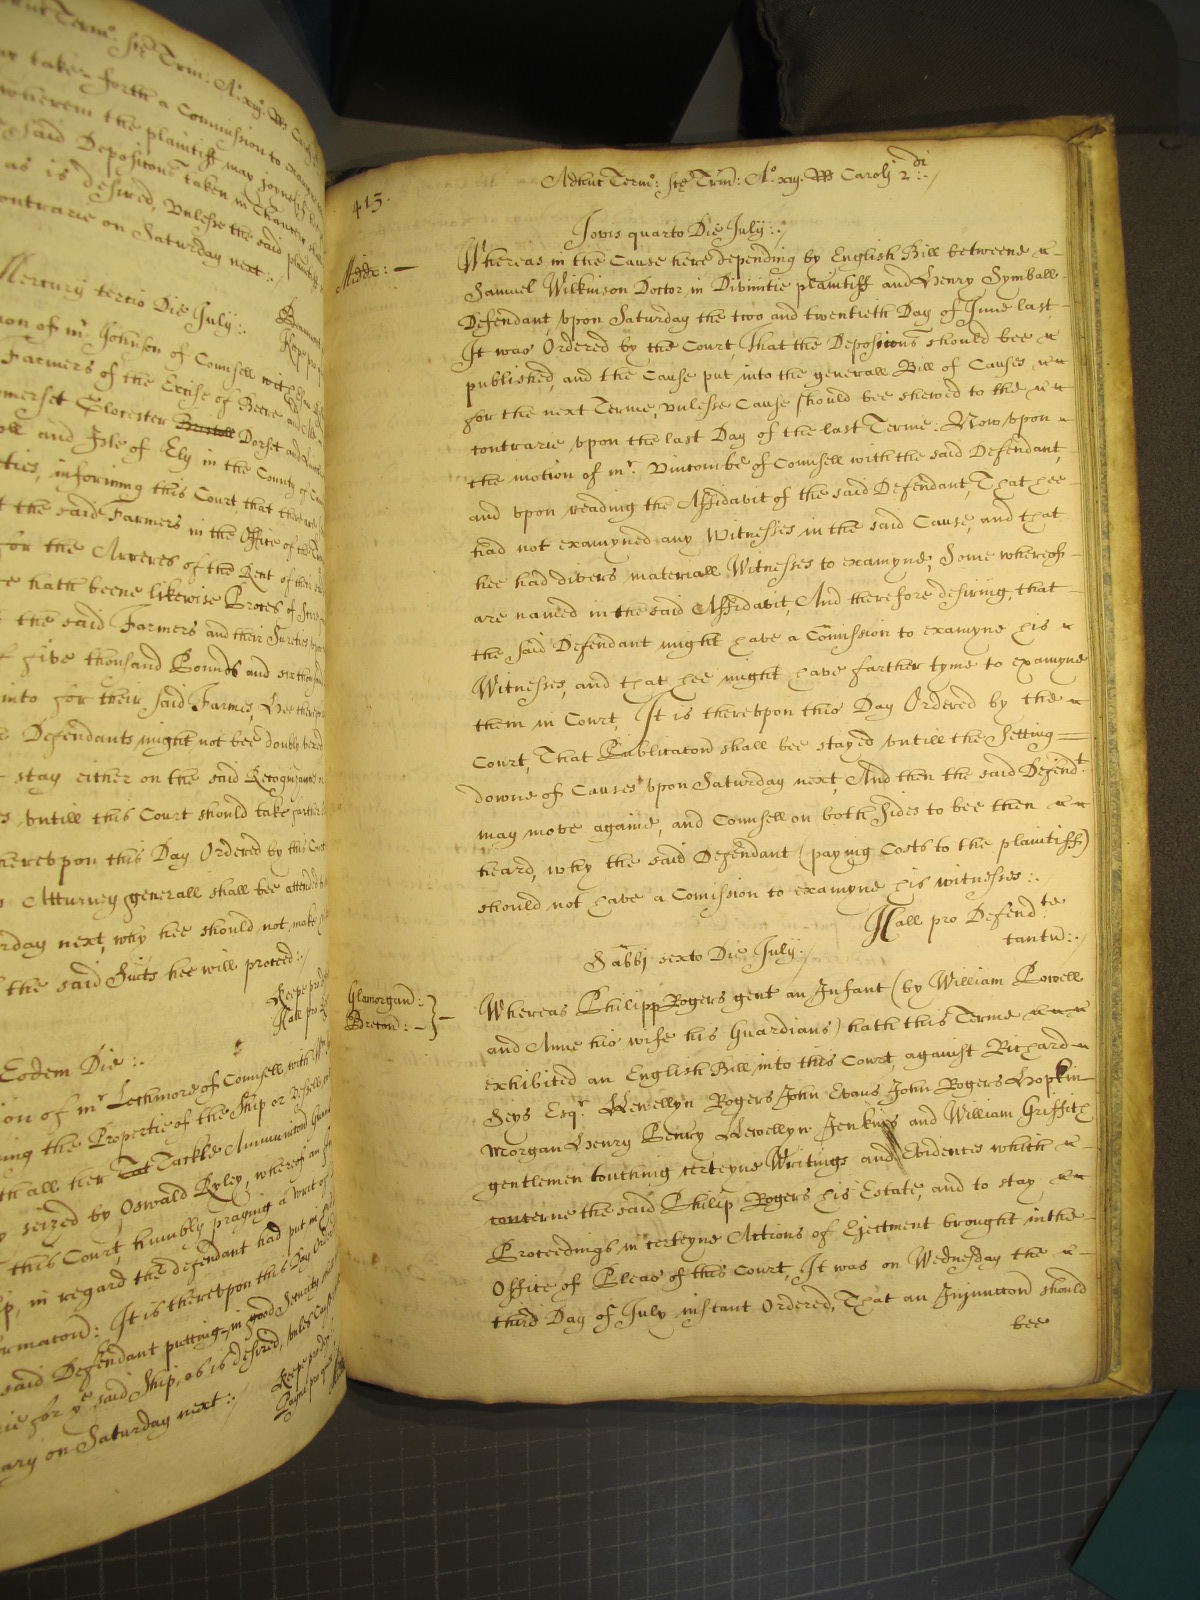 Termo: Ste Trin: Ao. xiijo. RRs
take forth a Commission to
wherein the plaintiff may joyne
said Depositons taken in Chancery
as is desired, vnlesse the said plaintiff
contrarie on Saturday next:.
Mercurij tertio Die July:.
of mr. Johnson of Counsell with
Farmers of the Excise of Beere and
Somerset Glocester Bristoll Dorset and
and Isle of Ely in the County of
informing this Court that
the said Farmers in the Office of the
for the Arreres of the Rent of their
hath beene likewise Proces of
the said Farmers and their Sureties
five thousand Pounds and six thousand
into for their said Farmes, Hee therefore
Defendants might not bee doubly vexed
stay either on the said Recognizance
vntill this Court should take further
therevpon this Day Ordered by this Court
Atturney generall shall bee attended
Saturday next, why hee should not make
the said Suits hee will proceed:.
Keepe pro
Hall pro
Eodem Die:.
of mr Lechmore of Counsell with
the Propertie of the Ship or Vessell
with all her Tackle Ammuniton
seized by Oswald Ryley, whereof an
this Court, humbly praying a writ of
in regard the defendant had put in
Informaton: It is therevpon this Day Ordered
said Defendant putting in good Security
for ye said Ship, as is desired, vnles Cause
contrary on Saturday next:.
Keepe pro
413.
Adhuc Termo: Ste Trin: Ao. xiijo. RRs Carolj 2.di:.
Jovis quarto Die July:.
Middx:
Whereas in the Cause here depending by English Bill betweene
Samuel Wilkinson Doctor in Divinitie plaintiff and Henry Symball
Defendant, vpon Saturday the two and twentieth Day of June last
It was Ordered by the Court, That the Depositons should bee
published, and the Cause put into the generall Bill of Causes
for the next Terme, vnlesse Cause should bee shewed to the
contrarie vpon the last Day of the last Terme. Now vpon
the motion of mr. Vincombe of Counsell with the said Defendant,
and vpon reading the Affidavit of the said Defendant, That hee
had not examyned any Witnesses in the said Cause, and that
hee had divers materiall Witnesses to examyne, Some whereof
are named in the said Affidavit, And therefore desiring, that
the said Defendant might have a Comission to examyne his
Witnesses, and that hee might have farther tyme to examyne
them in Court, It is therevpon this Day Ordered by the
Court, That Publicaton shall bee stayed vntill the Setting
downe of Causes vpon Saturday next, And then the said Defendt:
may move againe, and Counsell on both Sides to bee then
heard, why the said Defendant (paying Costs to the plaintiff)
should not have a Comission to examyne his witnesses:.
Hall pro Defendte
tantu:.
Sabbj sexto Die July:.
Glamorgan:
Brecon:
Whereas Philipp Rogers gent an Infant (by William Powell
and Anne his wife his Guardians) hath this Terme
exhibited an English Bill into this Court, against Richard
Seys Esqr. Llewellyn Rogers John Evans John Rogers Hopkin
Morgan Henry Penry Llewellyn Jenkins and William Griffith
gentlemen touching certeyne Writings and Evidences which
concerne the said Philip Rogers his Estate, and to stay
Proceedings in certeyne Actions of Ejectment brought in the
Office of Pleas of this Court, It was on Wednesday the
third Day of July instant Ordered, That an Injuncton should
bee